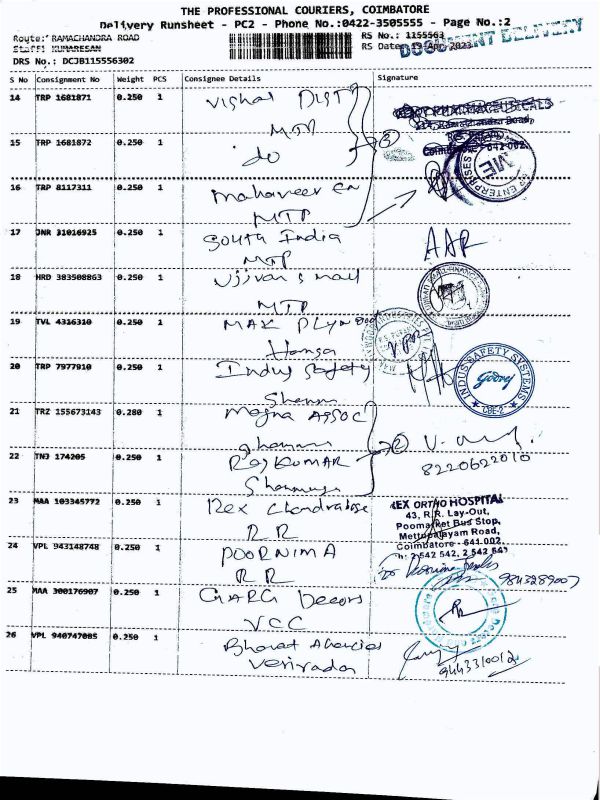 THE PROFESSIONAL COURIERS, COIMBATORE
Delivery Runsheet - PC2 - Phone No.:0422-3505555 - Page No.:2
Route: RAMACHANDRA ROAD
RS No.: 1155563
Staff: KUMARESAN
RS Date: 19 Apr 2023
DOCUMENT DELIVERY
DRS No.: DCJB115556302
S No Consignment No Weight PCS Consignee Details Signature
14 TRP 1681871 0.250 1 Vishal Dist
MTP
15 TRP 1681872 0.250 1 do
2
16 TRP 8117311 0.250 1 Mahaveer En
MTP
17 JNR 31016925 0.250 1 South India
MTP
AAR
18 HRD 383508863 0.250 1 Ujjivan Small
MTP
19 TVL 4316310 0.250 1 MAK PLYwood
Hansa
20 TRP 7977910 0.250 1 Indus Safety
INDUS SAFETY SYSTEMS
Godrej
CBE-2
21 TRZ 155673143 0.280 1 Assoc
2
22 TNJ 174205 0.250 1 RajKUMAR
8220622010
23 MAA 103345772 0.250 1 Rex
R R
REX ORTHO HOSPITAL
43, R.R. Lay-Out,
Poomarket Bus Stop,
Mettupalayam Road,
Coimbatore - 641 002.
Ph: 2542 542, 2 542 547
24 VPL 943148748 0.250 1 POORNIMA
R R
9843289007
25 MAA 300176907 0.250 1 GARG Decors
VCC
26 VPL 940747085 0.250 1 Bharat Agencies
9443310012